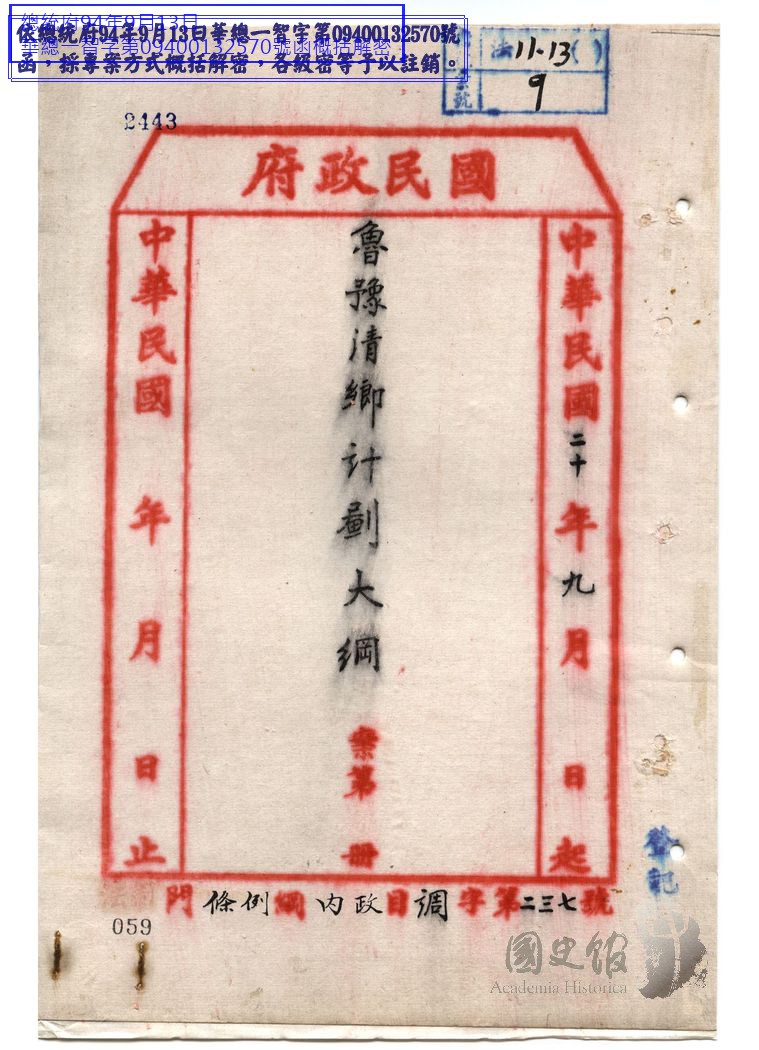 總統府94年9月13日
華總一智字第09400132570號函概括解密
依總統府94年9月13日華總一智字第09400132570號
函，採專案方式概括解密，各級密等予以註銷。
法11-13( )
號
9
2443
國民政府
中華民國二十年九月 日起
魯豫清鄉計劃大綱
案第 冊
中華民國 年 月 日止
門條例綱內政目調字第二三七號
059
登記
國史館
Academia Historica